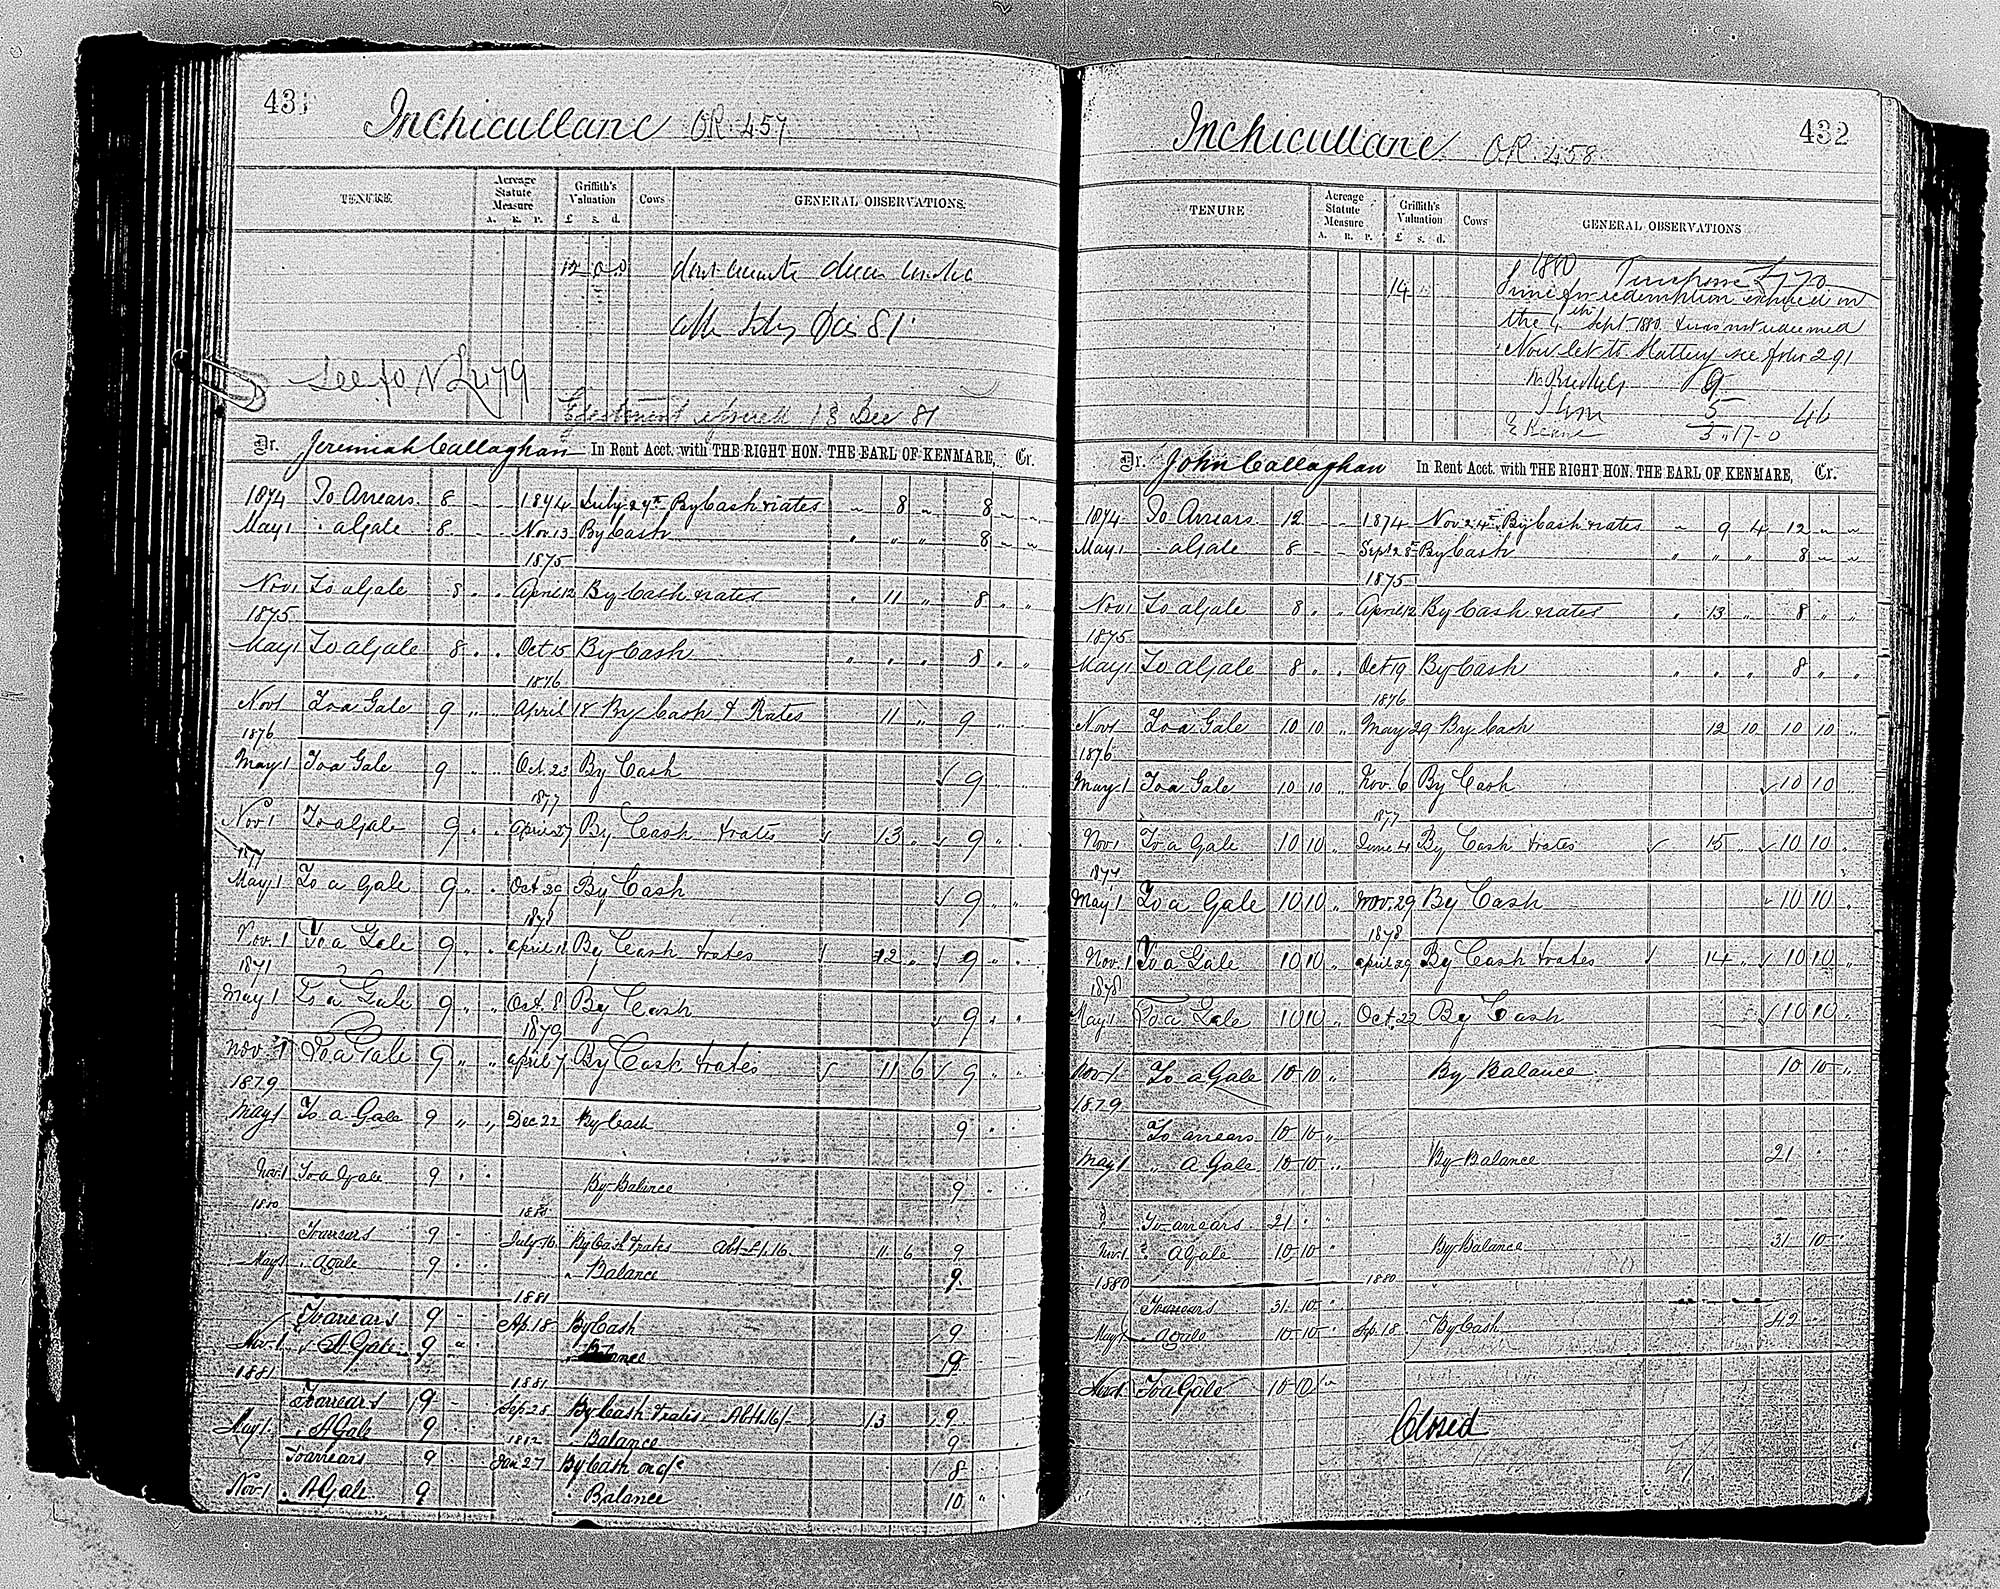 431
Inchicullane OR. 457
TENURE Acreage Statute Measure A. R. P. Griffith's Valuation £ s. d. Cows GENERAL OBSERVATIONS.
12 0 0
81
See fo N
Ejectment 13 Dec 81
Dr. Jeremiah Callaghan In Rent Acct. with THE RIGHT HON. THE EARL OF KENMARE, Cr.
1874 To Arrears 8 - - 1874 July 29th By Cash & rates " 8 " 8 " "
May 1 " a Gale 8 - - Nov 13 By Cash " " " 8 " "
1875
Nov 1 To a Gale 8 " " April 12 By Cash & rates " 11 " 8 " "
1875
May 1 To a Gale 8 " " Oct 15 By Cash " " " 8 " "
1876
Nov 1 To a Gale 9 " " April 18 By Cash & Rates 11 " 9 " "
1876
May 1 To a Gale 9 " " Oct. 23 By Cash ✓ 9
1877
Nov 1 To a Gale 9 " " April 27 By Cash & rates ✓ 13 " ✓ 9 " "
1877
May 1 To a Gale 9 " " Oct. 29 By Cash ✓ 9 " "
1878
Nov. 1 To a Gale 9 " " April 18 By Cash & rates ✓ 12 " ✓ 9 " "
May 1 To a Gale 9 " " Oct. 8 By Cash ✓ 9 " "
1879
Nov. 1 To a Gale 9 " " April 7 By Cash & rates ✓ 11 6 ✓ 9 " "
1879
May 1 To a Gale 9 " " Dec 22 By Cash 9 "
Nov. 1 To a Gale 9 " " By Balance 9 " "
1880 1880
To arrears 9 " July 16 By Cash & rates Abt £1.16. 11 6 9
May 1 " a Gale 9 " " " Balance 9
1881
To arrears 9 Ap. 18 By Cash ✓ 9
Nov. 1 " A Gale 9 " " Balance 9
1881 1881
To arrears 9 Sep. 28 By Cash & rates Abt 16/- 13 ✓ 9
May 1 " A Gale 9 " Balance 9
1882
To arrears 9 Jan 27 By Cash on a/c ✓ 8
Nov 1 " A Gale 9 " Balance 10 "
432
Inchicullane OR. 458
TENURE Acreage Statute Measure A. R. P. Griffith's Valuation £ s. d. Cows GENERAL OBSERVATIONS
14
1880
Time for redemption expired in
the 4th Sept. 1880 & was not redeemed
Now let to Slattery see folio 291
9
5 46
E Keane 3 " 17 - 0
Dr. John Callaghan In Rent Acct. with THE RIGHT HON. THE EARL OF KENMARE, Cr.
1874 To Arrears 12 - - 1874 Nov 24th By Cash & rates " 9 4 12 " "
May 1 " a Gale 8 - - Sept 28th By Cash " " " 8 " "
1875
Nov 1 To a Gale 8 " " April 12 By Cash & rates " 13 " 8 " "
1875
May 1 To a Gale 8 " " Oct 19 By Cash " " " 8 " "
1876
Nov 1 To a Gale 10 10 " May 29 By Cash 12 10 10 10 "
1876
May 1 To a Gale 10 10 " Nov. 6 By Cash ✓ 10 10
1877
Nov 1 To a Gale 10 10 " June 4 By Cash & rates ✓ 15 " ✓ 10 10 "
1877
May 1 To a Gale 10 10 " Nov. 29 By Cash ✓ 10 10 "
1878
Nov. 1 To a Gale 10 10 " April 29 By Cash & rates ✓ 14 " ✓ 10 10 "
1878
May 1 To a Gale 10 10 " Oct. 22 By Cash ✓ 10 10 "
Nov. 1 To a Gale 10 10 " By Balance 10 10 "
1879
To arrears 10 10 "
May 1 " A Gale 10 10 " By Balance 21 "
To arrears 21 " "
Nov. 1 " A Gale 10 10 " By Balance 31 10 "
1880 1880
To arrears 31 10 "
May 1 " a Gale 10 10 " Sep. 18 By Cash 42 "
Nov 1 To a Gale 10
Closed